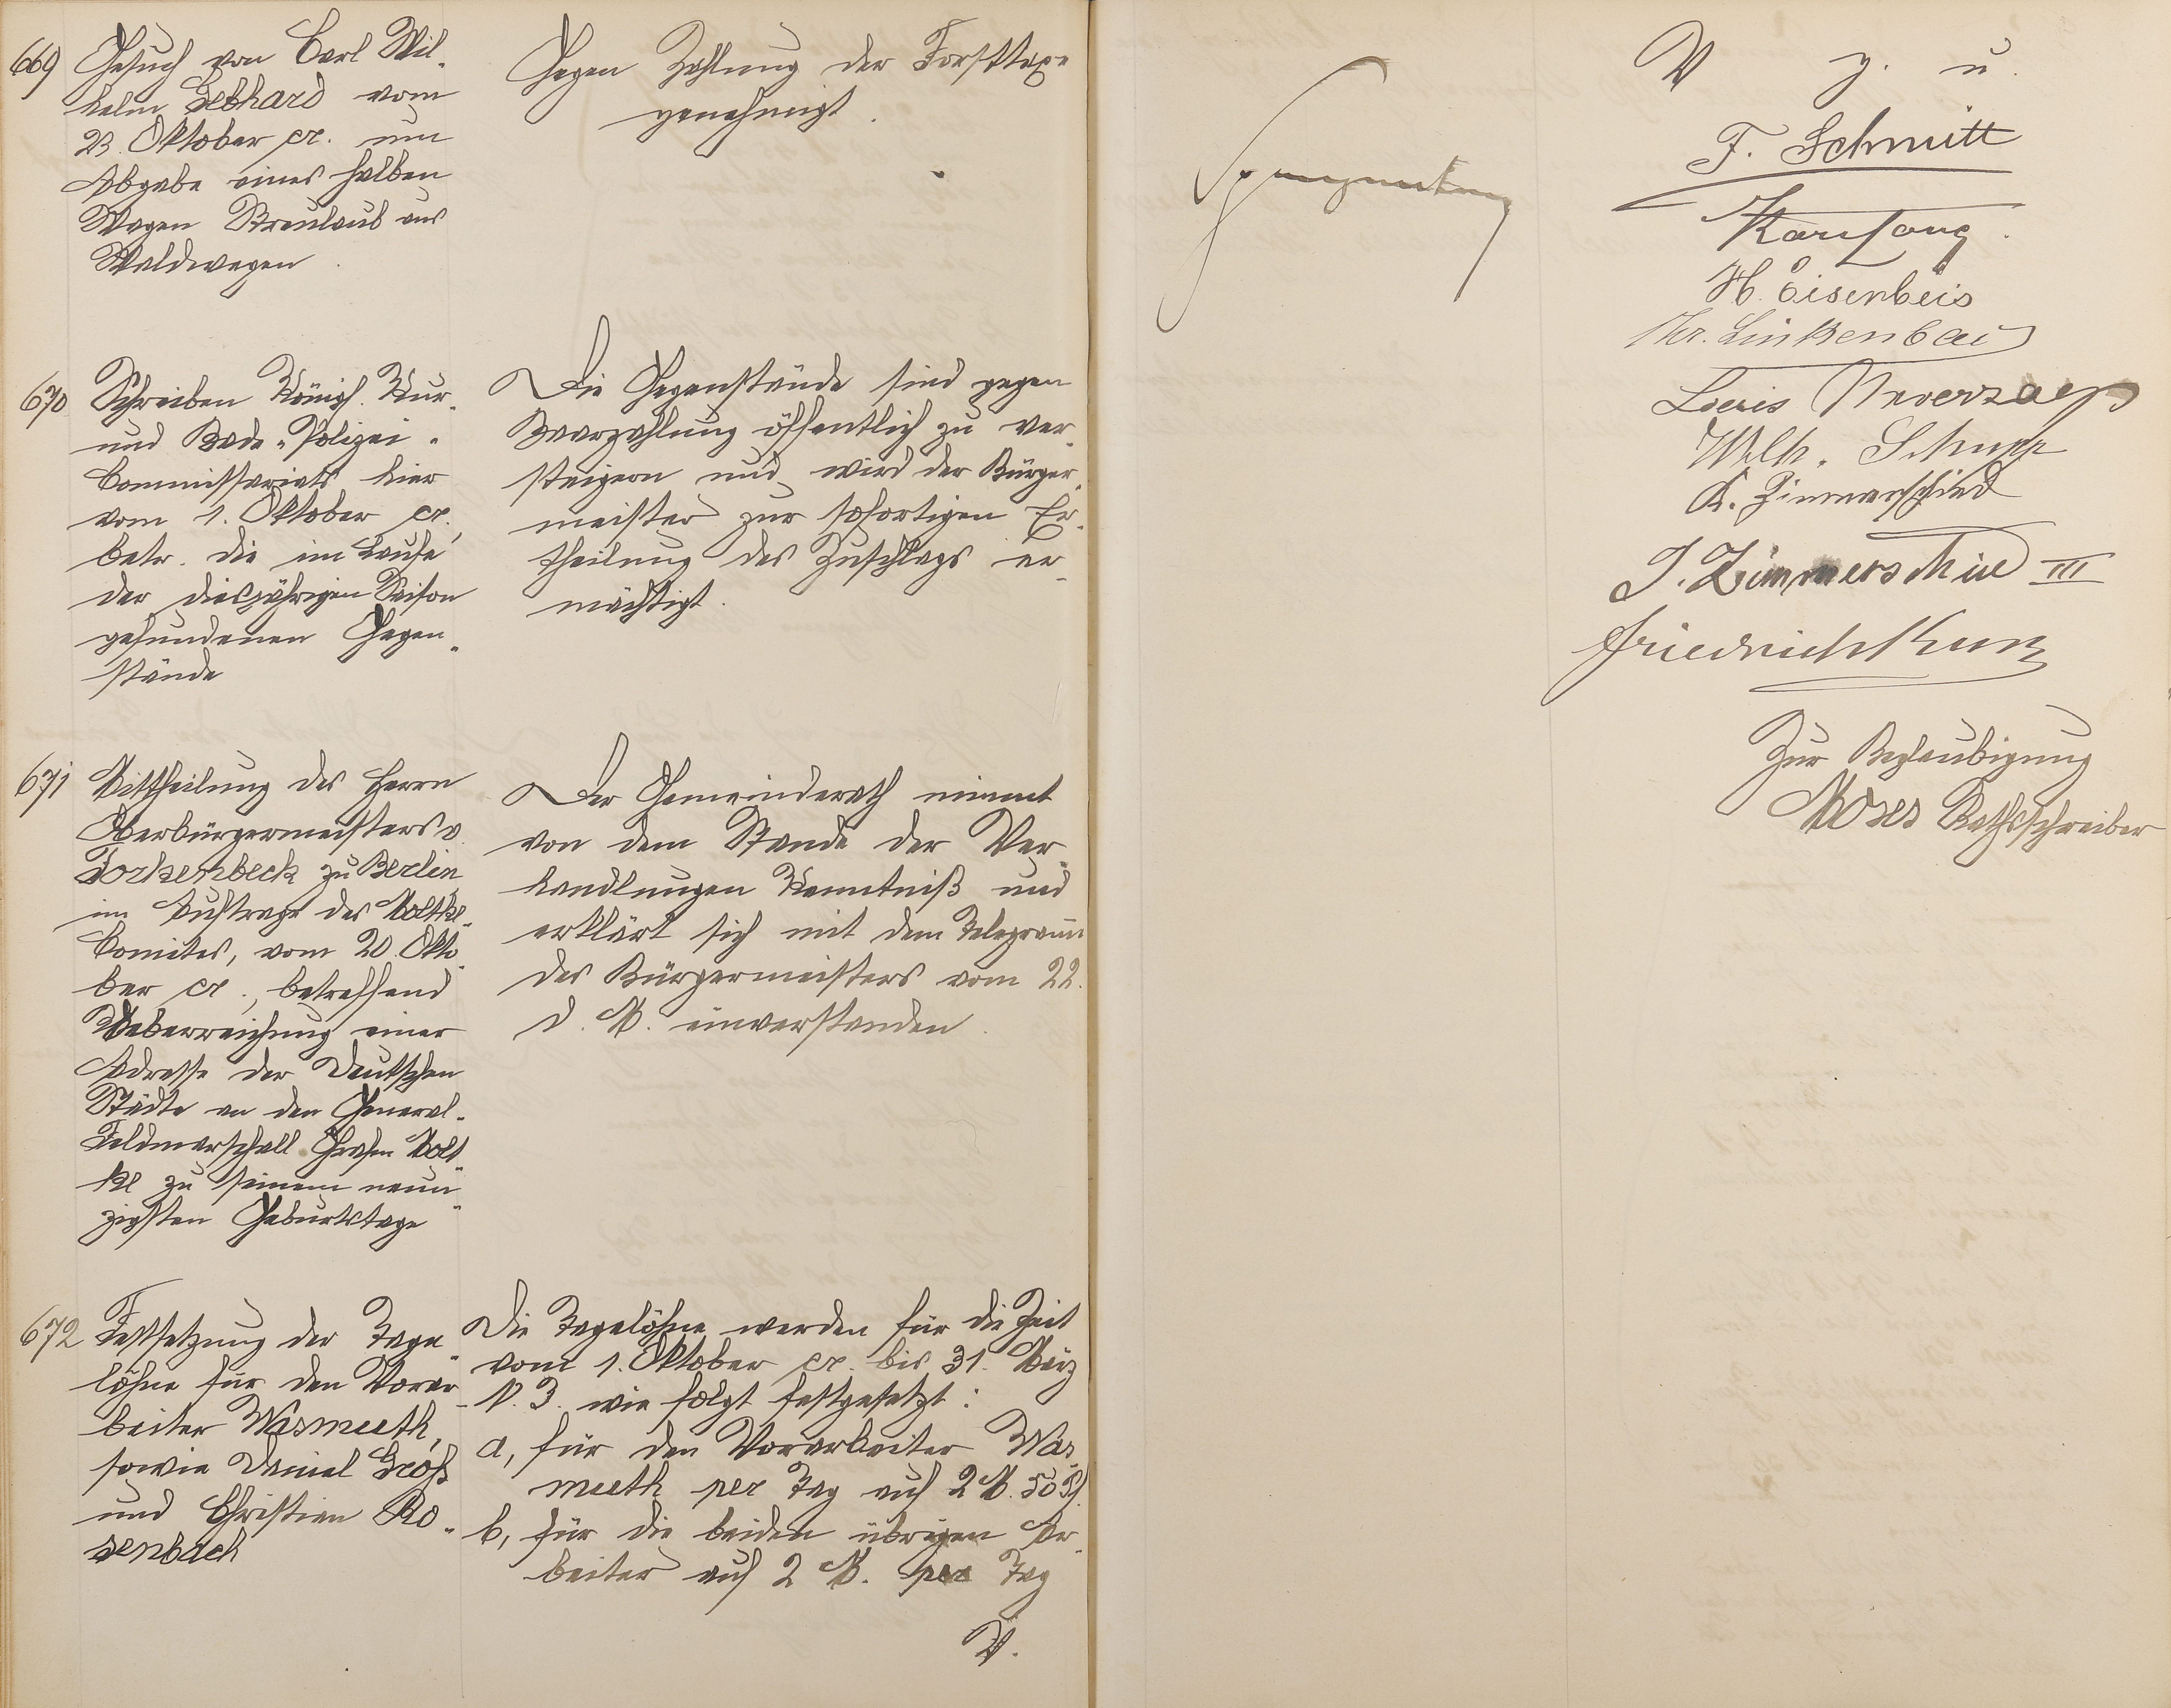 669
Gesuch von Carl Wil-
helm Gebhard vom
23. Oktober cr. um
Abgabe eines halben
Wagen Streulaub aus
Waldwegen.
Gegen Zahlung der Forsttaxe
genehmigt.
670
Schreiben Königl. Kur-
und Bade-Polizei-
Commissariats hier
vom 1. Oktober cr.,
betr. die im Laufe
der diesjährigen Saison
gefundenen Gegen-
stände
Die Gegenstände sind gegen
Baarzahlung öffentlich zu ver-
steigern und wird der Bürger-
meister zur sofortigen Er-
theilung des Zuschlags er-
mächtigt.
671
Mittheilung des Herrn
Oberbürgermeisters v.
Forkenbeck zu Berlin,
im Auftrage des Moltke-
Comites, vom 20. Okto-
ber cr., betreffend
Ueberreichung einer
Adresse der Deutschen
Städte an den General-
Feldmarschall Grafen Molt-
ke zu seinem neun-
zigsten Geburtstage
Der Gemeinderath nimmt
von dem Stande der Ver-
handlungen Kenntniß und
erklärt sich mit dem Telegramm
des Bürgermeisters vom 22.
d. M. einverstanden.
672
Festsetzung der Tage-
löhne für den Vorar-
beiter Wasmuth,
sowie Daniel Groß
und Christian Ro-
senbach
Die Tagelöhne werden für die Zeit
vom 1. Oktober cr. bis 31. März
n. J. wie folgt festgesetzt:
a, für den Vorarbeiter Was-
muth per Tag auf 2 M. 50 Pf.
b, für die beiden übrigen Ar-
beiter auf 2 M. per Tag
V.
V. g. u.
F. Schmitt
H. Eisenbeis
Chr. Linkenbach
Louis Unverzagt
Wilh. Schupp
K. Zimmerschied
J. Zimmerschied III
Friedrich Kunz
Zur Beglaubigung
Moses Rathsschreiber